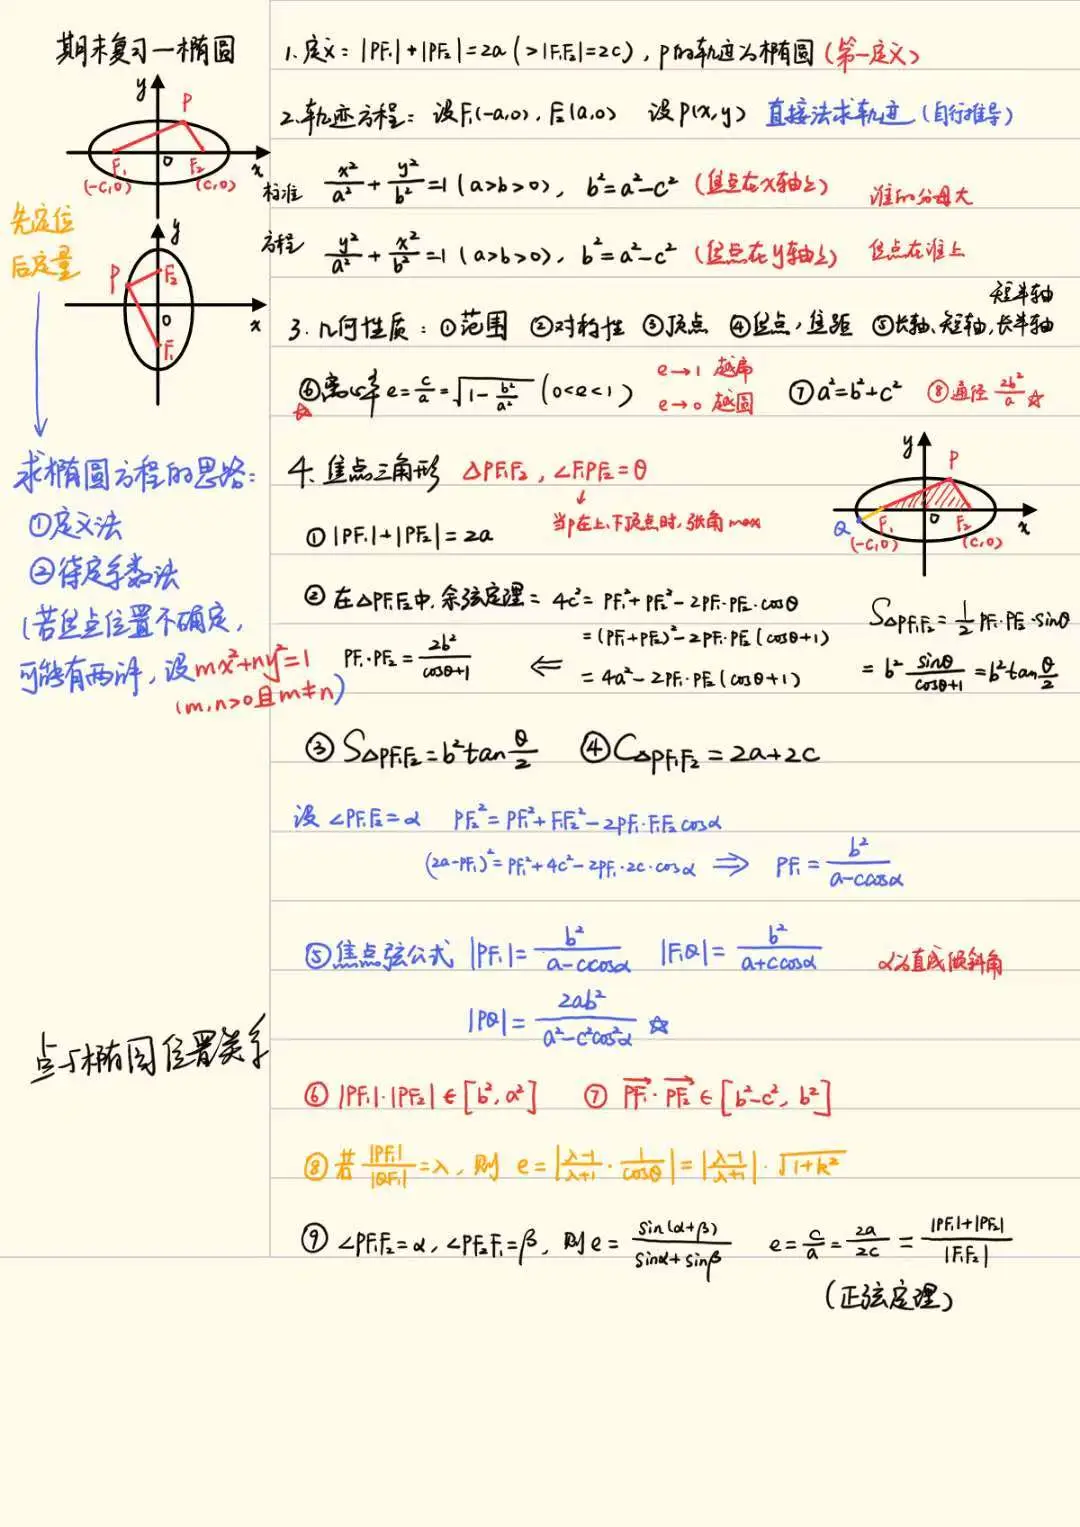 期末复习—椭圆
y
P
F₁
O
F₂
x
(-c,0)
(c,0)
先定位
后定量
y
P
F₂
O
x
F₁
求椭圆方程的思路:
①定义法
②待定系数法
(若焦点位置不确定,
可能有两解,设mx²+ny²=1
(m,n>0且m≠n)
点与椭圆位置关系
1.定义:|PF₁|+|PF₂|=2a(>|F₁F₂|=2c),P的轨迹为椭圆(第一定义)
2.轨迹方程:设F₁(-a,0),F₂(a,0) 设P(x,y) 直接法求轨迹(自行推导)
标准 x²/a²+y²/b²=1(a>b>0), b²=a²-c²(焦点在x轴上) 谁的分母大
方程 y²/a²+x²/b²=1(a>b>0), b²=a²-c²(焦点在y轴上) 焦点在谁上
短半轴
3.几何性质:①范围 ②对称性 ③顶点 ④焦点,焦距 ⑤长轴、短轴,长半轴
⑥离心率e=c/a=√(1-b²/a²)(0<e<1) e→1 越扁 ⑦a²=b²+c² ⑧通径2b²/a☆
☆ e→0 越圆
4.焦点三角形 △PF₁F₂,∠F₁PF₂=θ
↓
当P在上、下顶点时,张角max
y
P
Q
F₁
O
F₂
x
(-c,0)
(c,0)
①|PF₁|+|PF₂|=2a
②在△PF₁F₂中,余弦定理=4c²=PF₁²+PF₂²-2PF₁·PF₂·cosθ
=(PF₁+PF₂)²-2PF₁·PF₂(cosθ+1)
PF₁·PF₂=2b²/(cosθ+1) ⇐ =4a²-2PF₁·PF₂(cosθ+1)
S△PF₁F₂=1/2 PF₁·PF₂·sinθ
=b² sinθ/(cosθ+1)=b²tan θ/2
③S△PF₁F₂=b²tan θ/2 ④C△PF₁F₂=2a+2c
设∠PF₁F₂=α PF₂²=PF₁²+F₁F₂²-2PF₁·F₁F₂cosα
(2a-PF₁)²=PF₁²+4c²-2PF₁·2c·cosα ⇒ PF₁=b²/(a-ccosα)
⑤焦点弦公式 |PF₁|=b²/(a-ccosα) |F₁Q|=b²/(a+ccosα) α为直线倾斜角
|PQ|=2ab²/(a²-c²cos²α)☆
⑥|PF₁|·|PF₂|∈[b²,a²] ⑦PF₁→·PF₂→∈[b²-c²,b²]
⑧若|PF₁|/|QF₁|=λ,则 e=|(λ-1)/(λ+1)·1/cosθ|=|(λ-1)/(λ+1)|·√(1+k²)
⑨∠PF₁F₂=α,∠PF₂F₁=β,则e=sin(α+β)/(sinα+sinβ) e=c/a=2a/2c=(|PF₁|+|PF₂|)/|F₁F₂|
(正弦定理)